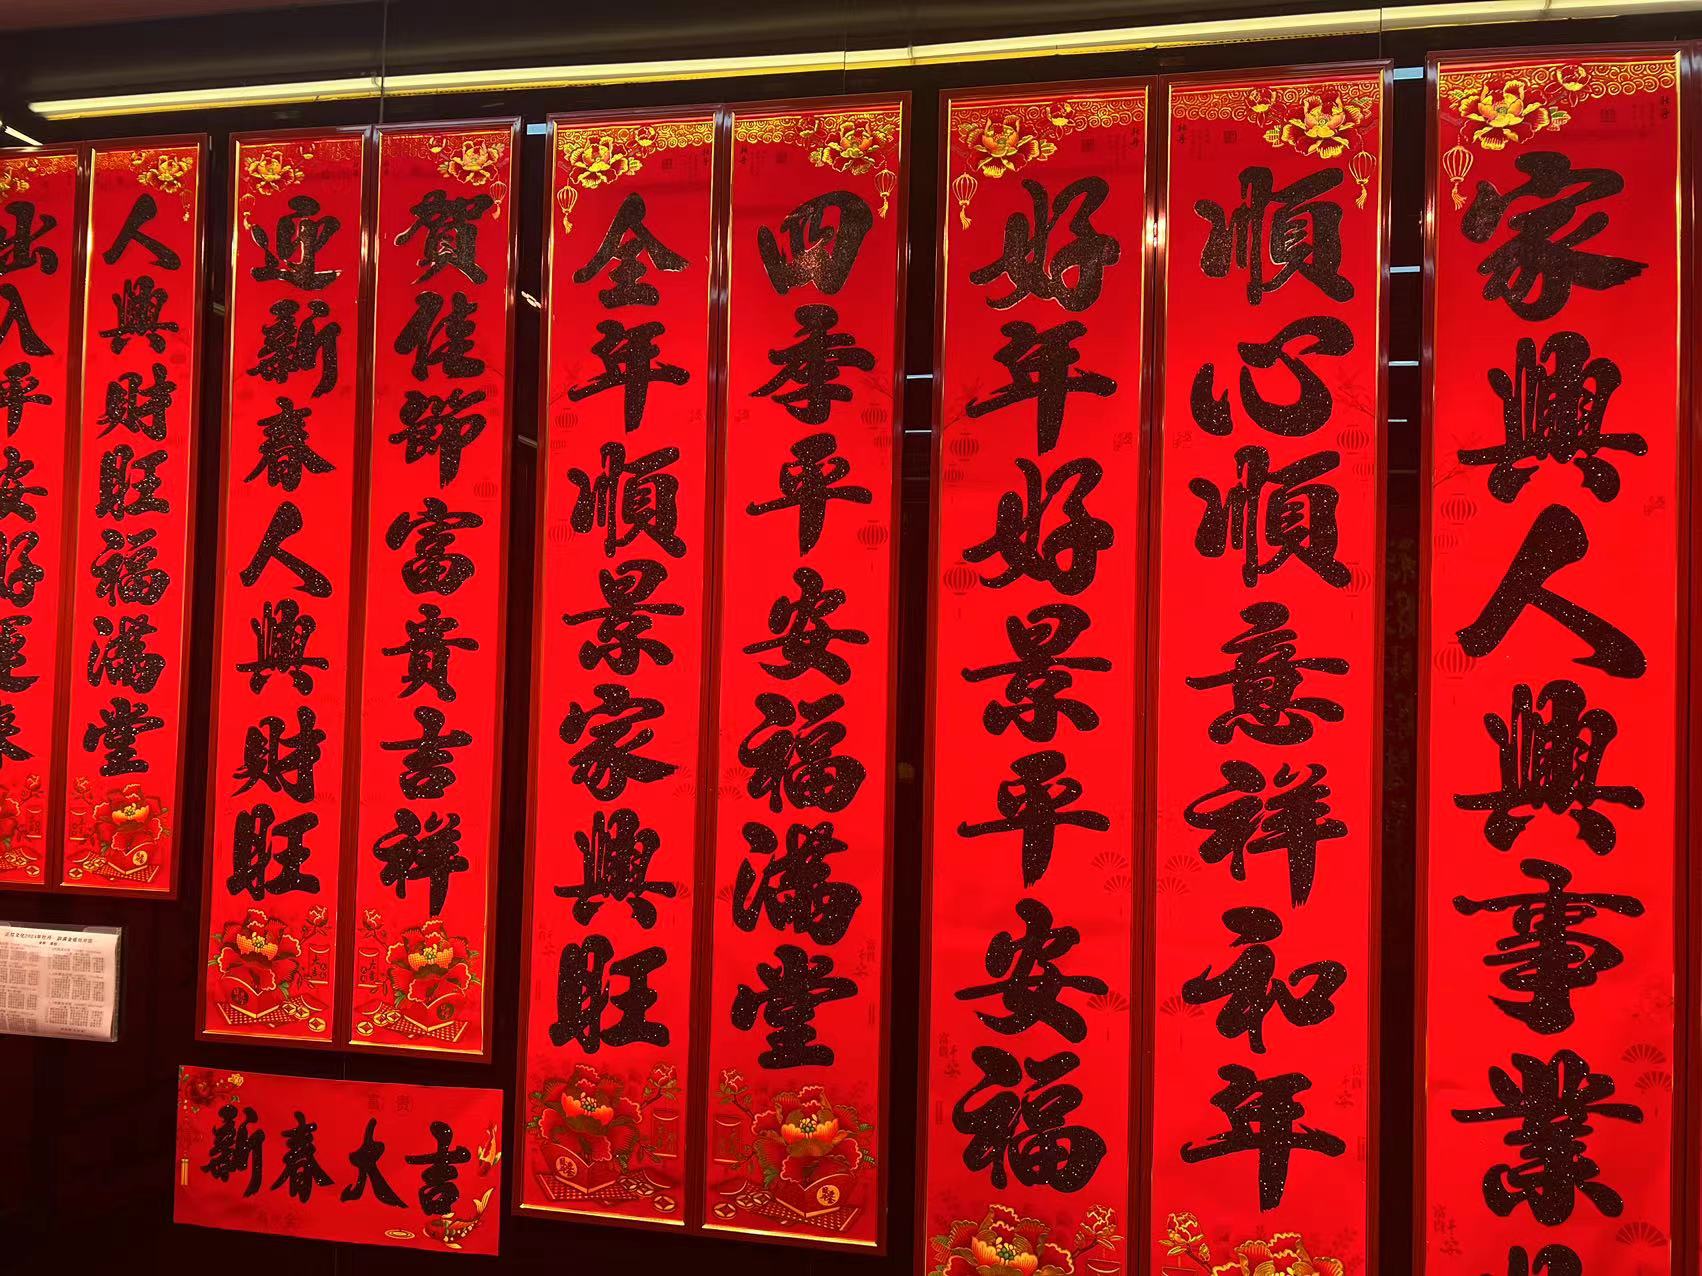 出入平安好運來
人興財旺福滿堂
迎新春人興財旺
賀佳節富貴吉祥
全年順景家興旺
四季平安福滿堂
好年好景平安福
順心順意祥和年
家興人興事業
富貴
新春大吉